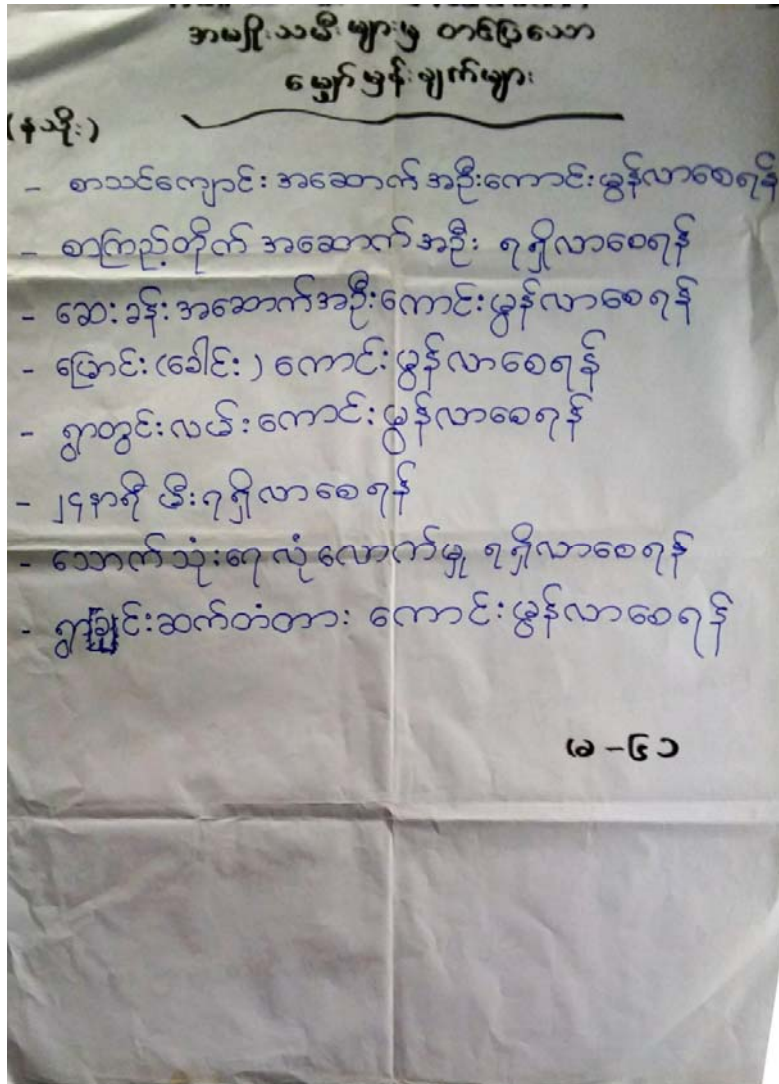 အမျိုးသမီးများမှ တင်ပြသော
မျှော်မှန်းချက်များ
(နသိုး)
- စာသင်ကျောင်း အဆောက်အဦးကောင်းမွန်လာစေရန်
- စာကြည့်တိုက် အဆောက်အဦး ရရှိလာစေရန်
- ဆေးခန်းအဆောက်အဦးကောင်းမွန်လာစေရန်
- မြောင်း(ခေါင်း) ကောင်းမွန်လာစေရန်
- ရွာတွင်းလမ်းကောင်းမွန်လာစေရန်
- ၂၄နာရီ မီးရရှိလာစေရန်
- သောက်သုံးရေလုံလောက်မှု ရရှိလာစေရန်
- ရွာချင်းဆက်တံတား ကောင်းမွန်လာစေရန်
မ - ၆၁